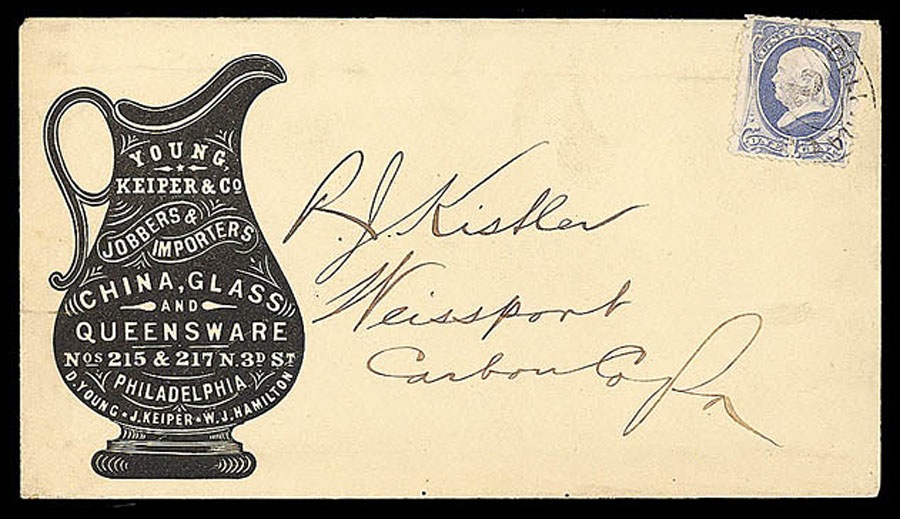 YOUNG,
KEIPER & CO
JOBBERS &
IMPORTERS
CHINA, GLASS
AND
QUEENSWARE
NOS 215 & 217 N. 3D ST
PHILADELPHIA
D. YOUNG • J. KEIPER • W. J. HAMILTON
R. J. Kistler
Weissport
Carbon Co Pa